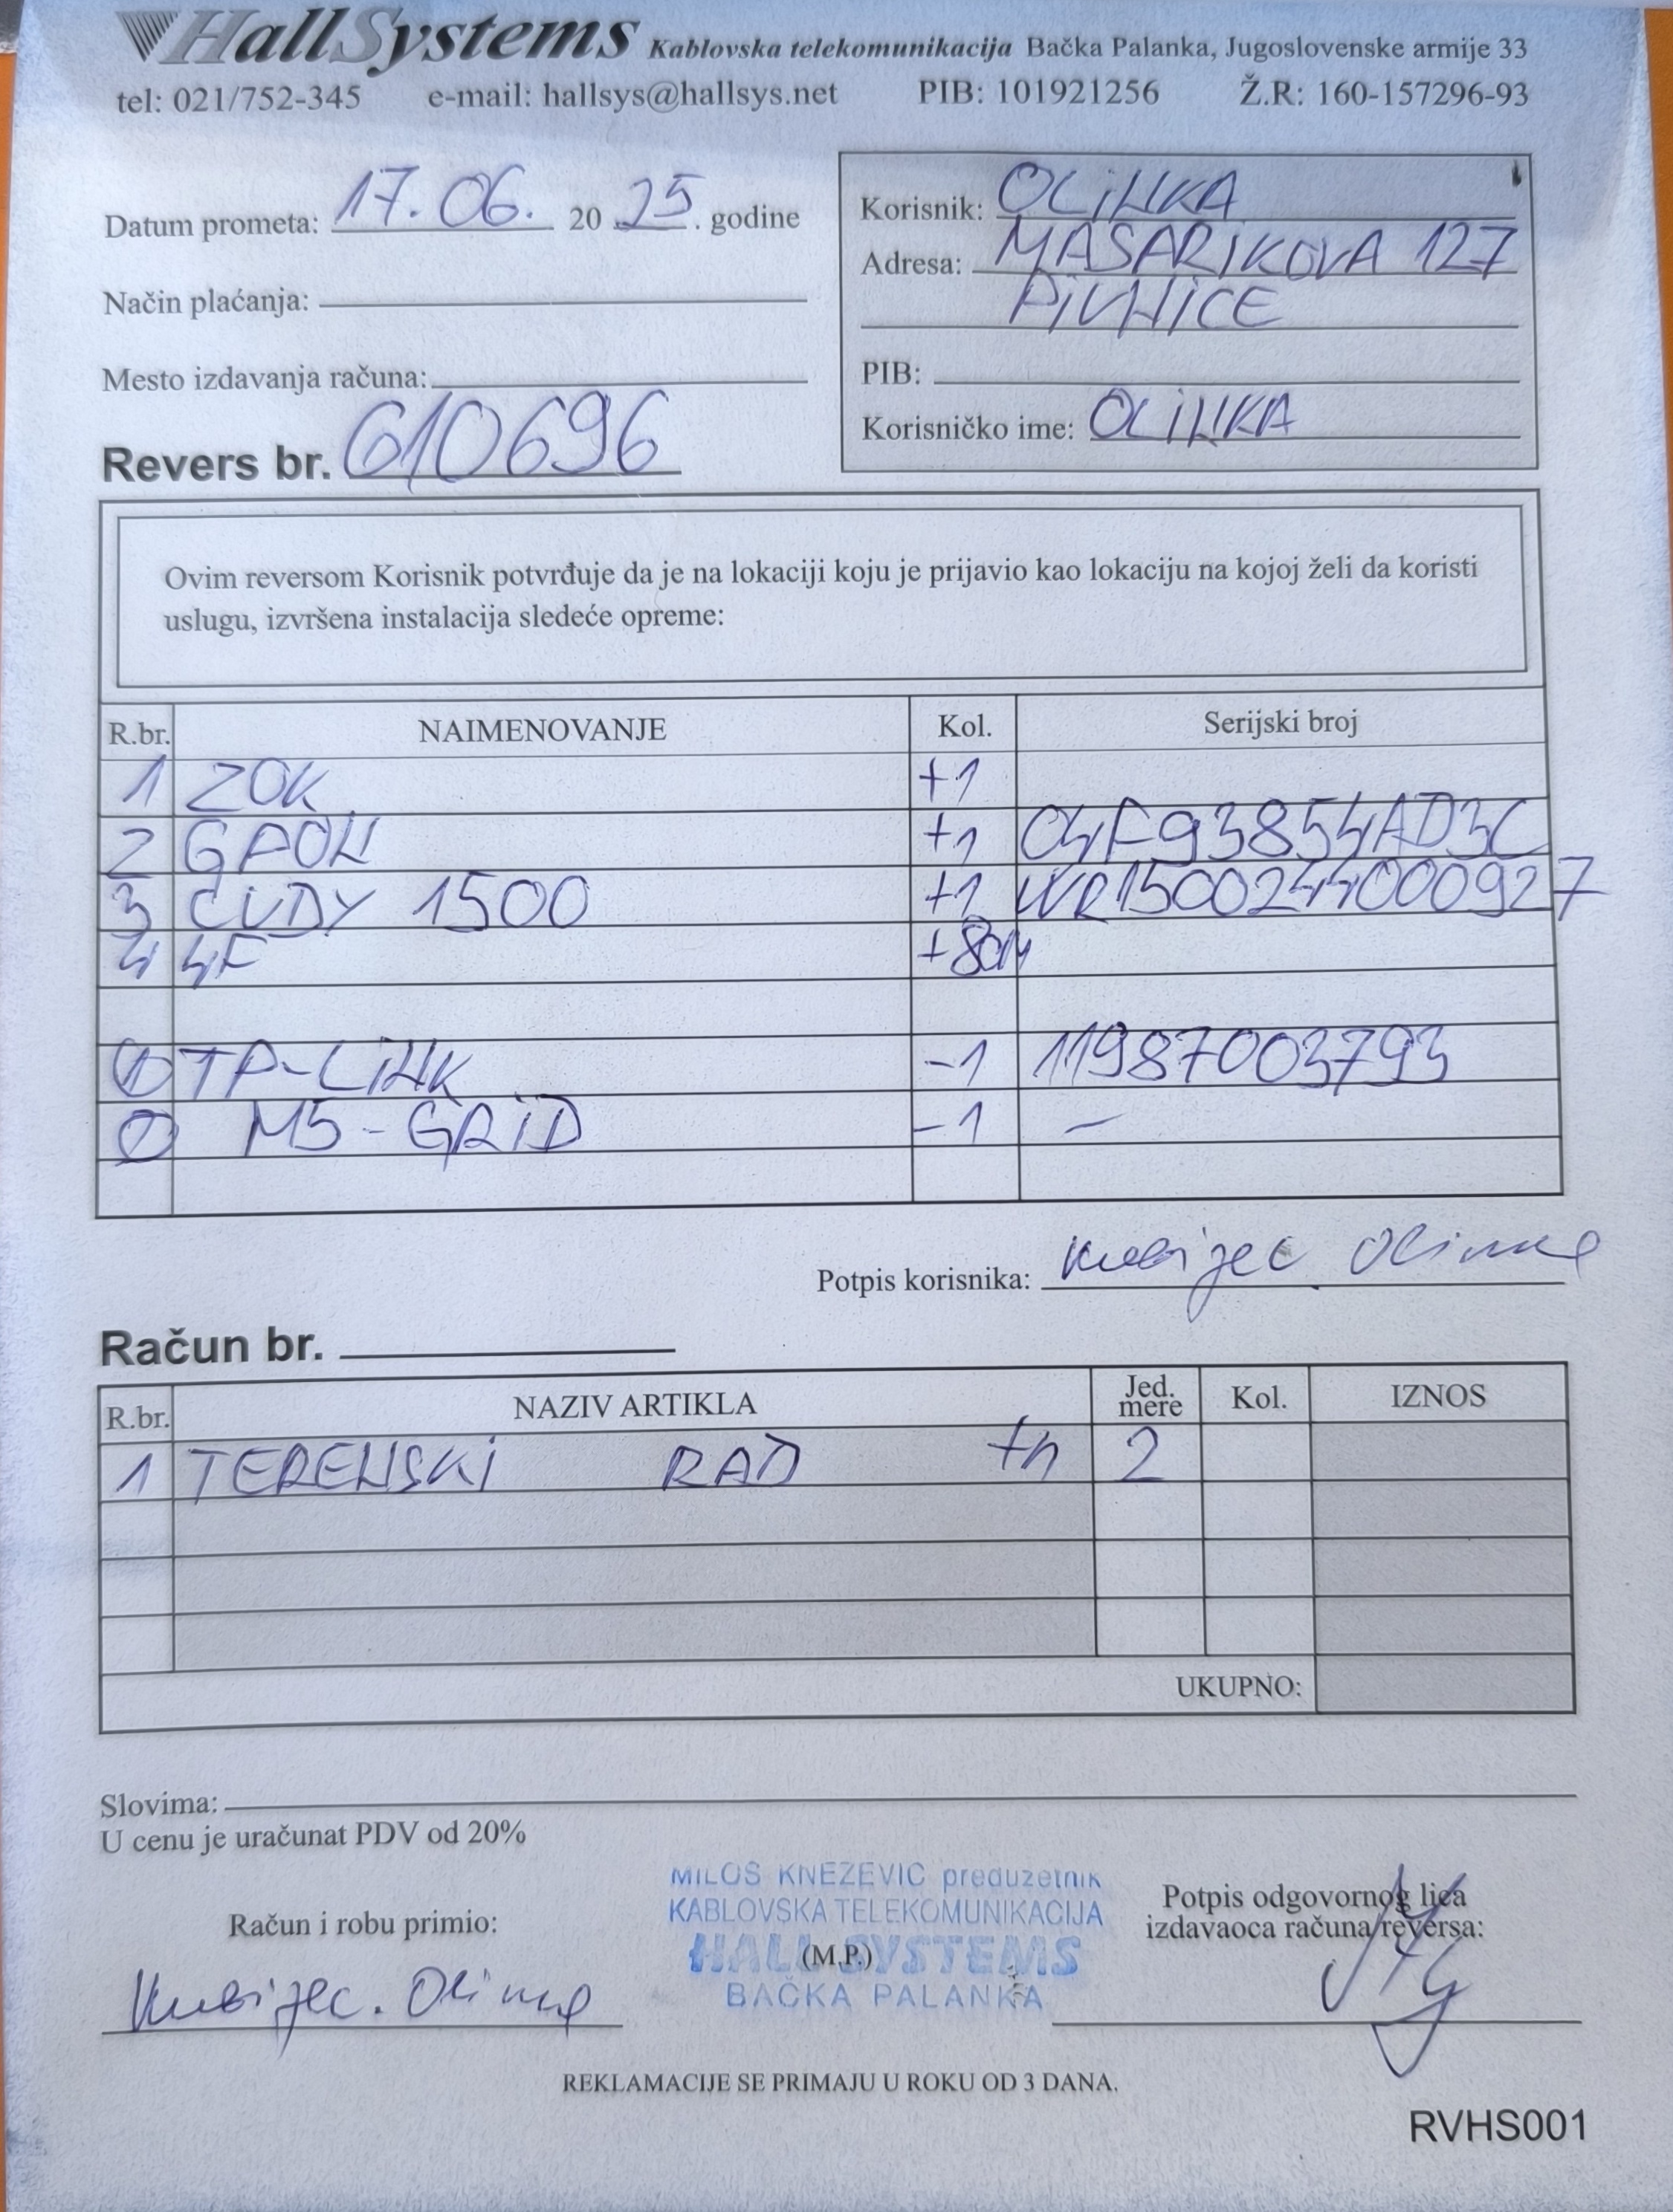 HallSystems Kablovska telekomunikacija Bačka Palanka, Jugoslovenske armije 33
tel: 021/752-345 e-mail: hallsys@hallsys.net PIB: 101921256 Ž.R: 160-157296-93
Datum prometa: 17.06. 20 25. godine
Način plaćanja:
Mesto izdavanja računa:
Revers br. 610696
Korisnik: OLiNKA
Adresa: MASARIKOVA 127
PiVNiCE
PIB:
Korisničko ime: OLiNKA
Ovim reversom Korisnik potvrđuje da je na lokaciji koju je prijavio kao lokaciju na kojoj želi da koristi
uslugu, izvršena instalacija sledeće opreme:
R.br. NAIMENOVANJE Kol. Serijski broj
1 ZOK +1
2 GPON +1 04F93854AD3C
3 CUDY 1500 +1 WR1500244000927
4 4F +80M
1 TP-LiNK -1 11987003793
M5-GRiD -1 -
Potpis korisnika: Kubijec Olinka
Račun br.
R.br. NAZIV ARTIKLA Jed. mere Kol. IZNOS
1 TERENSKi RAD +h 2
UKUPNO:
Slovima:
U cenu je uračunat PDV od 20%
Račun i robu primio:
Kubijec. Olinka
MILOŠ KNEŽEVIĆ preduzetnik
KABLOVSKA TELEKOMUNIKACIJA
HALL SYSTEMS
(M.P.)
BAČKA PALANKA
Potpis odgovornog lica
izdavaoca računa/reversa:
REKLAMACIJE SE PRIMAJU U ROKU OD 3 DANA.
RVHS001